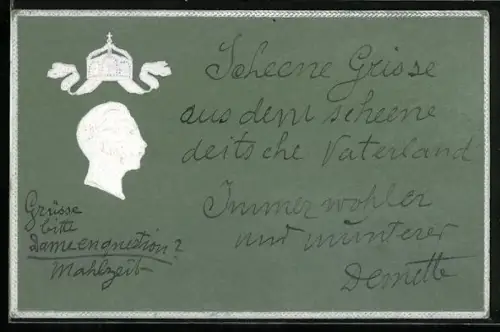 Scheene Grisse
aus dem scheene
deitsche Vaterland
Immer wohler
und munterer
Demette
Grüsse
bitte
Dame en question?
Mahlzeit